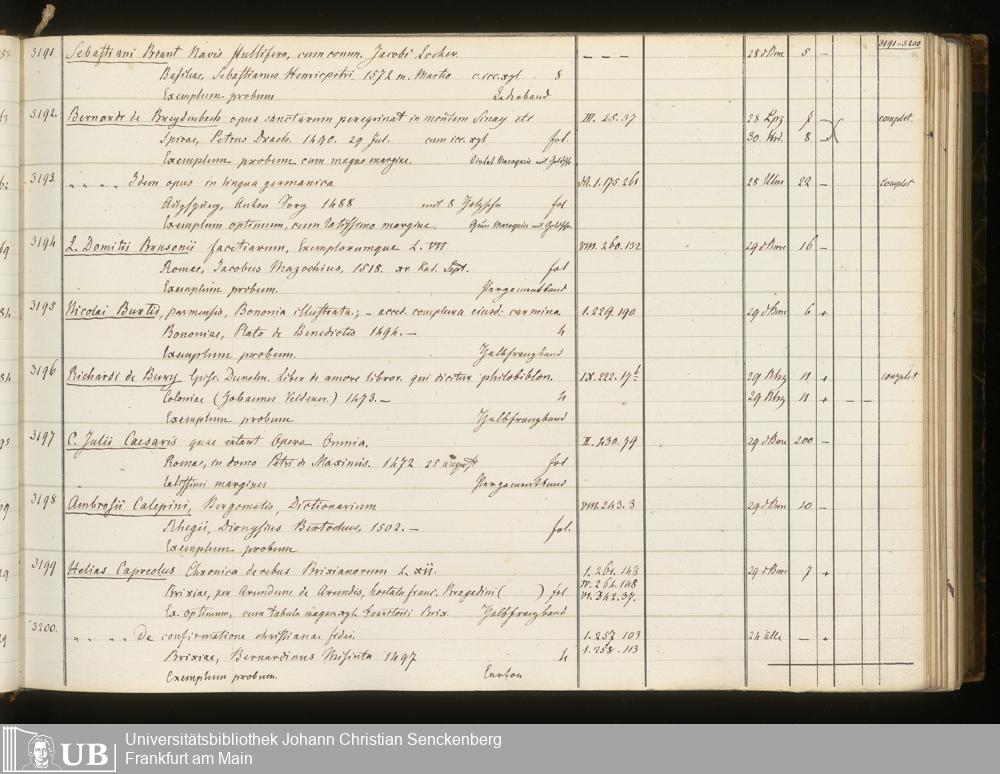 3191-3200
3191 Sebastiani Brant Navis stultifera, cum comm. Jacobi Locher. – – – 28 5 –
Basileae, Sebastianus Henricpetri 1572 m. Martio c. icc. xyl 8
Exemplum probum Lederband
3192. Bernardi de Breydenbach opus sanctarum peregrinat in montem Sinay etc III. 25. 37 28 Lpz complet.
Spirae, Petrus Drach. 1490. 29 Jul. cum icc. xyl fol. 30. 8
Exemplum probum cum magno margine. Violet Maroquin mit Goldschn
3193. „ „ „ „ Idem opus in lingua germanica 1. 175. 261 28 Ulm 22 – complet
Augspurg, Anton Sorg 1488 mit 8 fol
Exemplum optimum, cum latissimo margine. Grün Maroquin mit Goldschn
3194 L. Domitii Brusonii facetiarum, Exemplorumque L. VII VIII. 260. 132 29 16 –
Romae, Jacobus Mazochius, 1518. xv Kal. Sept. fol
Exemplum probum. Pergamentband
3195 Nicolai Burtii, parmensis, Bononia illustrata; – acced. complura eiusd: carmina 1. 229. 190 29 6 +
Bononiae, Plato de Benedictis 1494. – 4
Exemplum probum. Halbfranzband
3196 Richardi de Bury Episc. Dunelm. Liber de amore libror. qui dicitur philobiblon. IX. 222. 17b 29 11 + complet
Coloniae (Johannes Veldener.) 1473. – 4 29 11 + – –
Exemplum probum Halbfranzband
3197 C. Julii Caesaris quae extant Opera Omnia. II. 430. 79 29 200 –
Romae, in domo Petri de Maximis. 1472 25 august fol
latissimi margines Pergamentband
3198 Ambrosii Calepini, Bergomatis, Dictionarium VIII. 243. 3 29 10 –
Rhegii, Dionysius Bertochus, 1502. – fol.
Exemplum probum
3199 Helias Capreolus Chronica de rebus Brixianorum L. XII. 1. 261. 148 29 7 +
Brixiae, per Arundum de Arundis, hortatu franc. Bragadini ( ) fol IV. 261. 148
VI. 342. 37.
Ex. optimum, cum tabula magna xyl. territorii Brix. Halbfranzband
3200. „ „ „ „ De confirmatione christianae fidei. 1. 257 109 24 – +
Brixiae, Bernardinus Misinta 1497 4 1. 258. 113
Exemplum probum. Carton
UB
Universitätsbibliothek Johann Christian Senckenberg
Frankfurt am Main